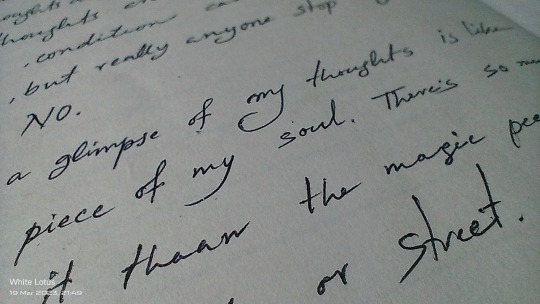 thoughts
condition
, but really anyone stop
NO.
a glimpse of my thoughts is like
piece of my soul. There's so
it thaan the magic
or street.
White Lotus
19 Mar 2023, 21:49